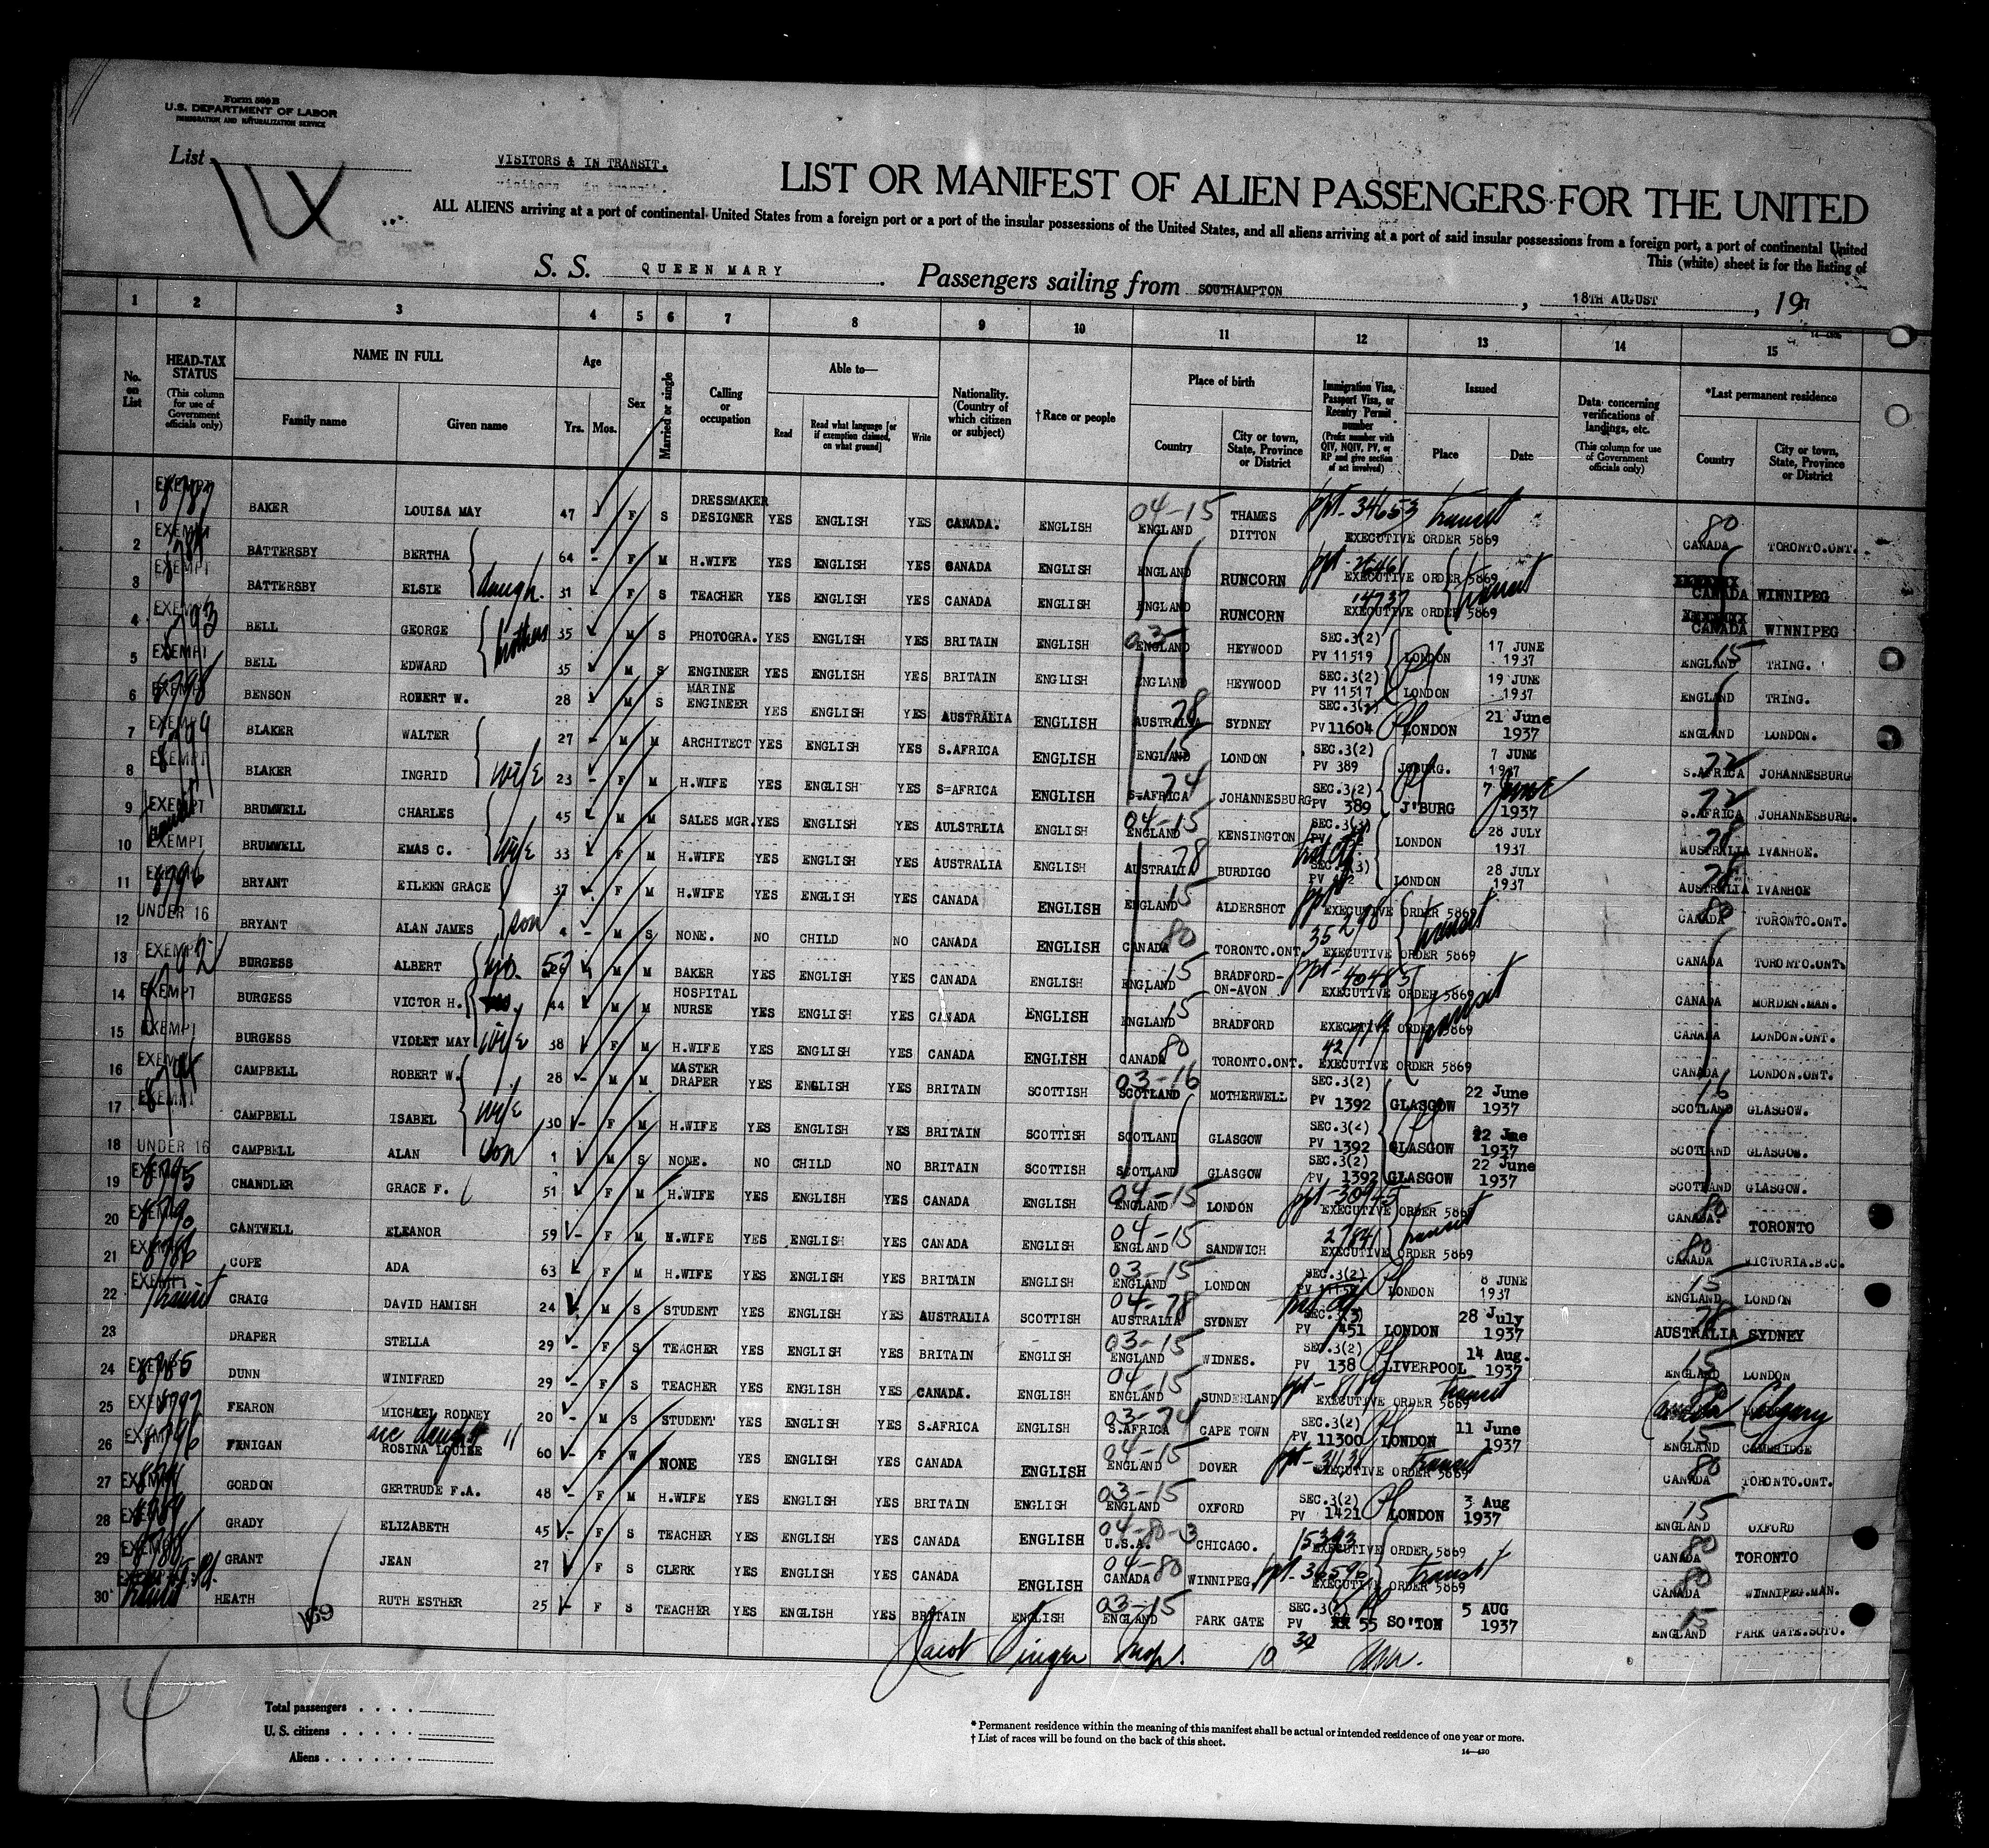 Form 500 B
U.S. DEPARTMENT OF LABOR
IMMIGRATION AND NATURALIZATION SERVICE
List
VISITORS & IN TRANSIT.
visitors in transit.
LIST OR MANIFEST OF ALIEN PASSENGERS FOR THE UNITED
ALL ALIENS arriving at a port of continental United States from a foreign port or a port of the insular possessions of the United States, and all aliens arriving at a port of said insular possessions from a foreign port, a port of continental United
This (white) sheet is for the listing of
S. S. QUEEN MARY Passengers sailing from SOUTHAMPTON, 18TH AUGUST, 19
1 2 3 4 5 6 7 8 9 10 11 12 13 14 15
No. on List
HEAD-TAX STATUS (This column for use of Government officials only)
NAME IN FULL
Family name Given name
Age
Yrs. Mos.
Sex
Married or single
Calling or occupation
Able to—
Read
Read what language [or if exemption claimed, on what ground]
Write
Nationality. (Country of which citizen or subject)
† Race or people
Place of birth
Country
City or town, State, Province or District
Immigration Visa, Passport Visa, or Reentry Permit number (Prefix number with QIV, NQIV, PV, or RP and give section of act involved)
Issued
Place Date
Data concerning verifications of landings, etc. (This column for use of Government officials only)
*Last permanent residence
Country
City or town, State, Province or District
1 EXEMPT BAKER LOUISA MAY 47 F S DRESSMAKER DESIGNER YES ENGLISH YES CANADA. ENGLISH 04-15 ENGLAND THAMES DITTON ppt- 34653 transit EXECUTIVE ORDER 5869 80 CANADA TORONTO.ONT.
2 EXEMPT BATTERSBY BERTHA 64 F M H.WIFE YES ENGLISH YES CANADA ENGLISH ENGLAND RUNCORN EXECUTIVE ORDER 5869 transit CANADA WINNIPEG
3 EXEMPT BATTERSBY ELSIE daugh. 31 F S TEACHER YES ENGLISH YES CANADA ENGLISH ENGLAND RUNCORN 14737 EXECUTIVE ORDER 5869 CANADA WINNIPEG
4 EXEMPT BELL GEORGE brothers 35 M S PHOTOGRA. YES ENGLISH YES BRITAIN ENGLISH 03 ENGLAND HEYWOOD SEC.3(2) PV 11519 LONDON 17 JUNE 1937 15 ENGLAND TRING.
5 EXEMPT BELL EDWARD 35 M S ENGINEER YES ENGLISH YES BRITAIN ENGLISH ENGLAND HEYWOOD SEC.3(2) PV 11517 LONDON 19 JUNE 1937 ENGLAND TRING.
6 EXEMPT BENSON ROBERT W. 28 M S MARINE ENGINEER YES ENGLISH YES AUSTRALIA ENGLISH 78 AUSTRALIA SYDNEY SEC.3(2) PV 11604 LONDON 21 June 1937 ENGLAND LONDON.
7 EXEMPT BLAKER WALTER 27 M M ARCHITECT YES ENGLISH YES S.AFRICA ENGLISH 15 ENGLAND LONDON SEC.3(2) PV 389 JOBURG. 7 JUNE 1937 S.AFRICA JOHANNESBURG
8 EXEMPT BLAKER INGRID wife 23 F M H.WIFE YES ENGLISH YES S=AFRICA ENGLISH 74 S=AFRICA JOHANNESBURG SEC.3(2) PV 389 J'BURG 7 June 1937 S.AFRICA JOHANNESBURG.
9 EXEMPT transit BRUMWELL CHARLES 45 M M SALES MGR. YES ENGLISH YES AULSTRLIA ENGLISH 04-15 ENGLAND KENSINGTON SEC.3(3) PV LONDON 28 JULY 1937 78 AUSTRALIA IVANHOE.
10 EXEMPT BRUMWELL EMAS C. wife 33 F M H.WIFE YES ENGLISH YES AUSTRALIA ENGLISH 78 AUSTRALIA BURDIGO SEC.3(3) PV LONDON 28 JULY 1937 78 AUSTRALIA IVANHOE
11 EXEMPT 8796 BRYANT EILEEN GRACE 37 F M H.WIFE YES ENGLISH YES CANADA ENGLISH 15 ENGLAND ALDERSHOT ppt EXECUTIVE ORDER 5869 80 CANADA TORONTO.ONT.
12 UNDER 16 BRYANT ALAN JAMES son 4 M S NONE. NO CHILD NO CANADA ENGLISH 80 CANADA TORONTO.ONT. 35298 EXECUTIVE ORDER 5869 transit CANADA TORONTO.ONT.
13 EXEMPT BURGESS ALBERT 57 M M BAKER YES ENGLISH YES CANADA ENGLISH 15 ENGLAND BRADFORD-ON-AVON ppt- EXECUTIVE ORDER 5869 CANADA MORDEN.MAN.
14 EXEMPT BURGESS VICTOR H. 44 M M HOSPITAL NURSE YES ENGLISH YES CANADA ENGLISH 15 ENGLAND BRADFORD EXECUTIVE ORDER 5869 transit CANADA LONDON.ONT.
15 EXEMPT BURGESS VIOLET MAY wife 38 F M H.WIFE YES ENGLISH YES CANADA ENGLISH 80 CANADA TORONTO.ONT. EXECUTIVE ORDER 5869 CANADA LONDON.ONT.
16 EXEMPT CAMPBELL ROBERT W. 28 M M MASTER DRAPER YES ENGLISH YES BRITAIN SCOTTISH 03-16 SCOTLAND MOTHERWELL SEC.3(2) PV 1392 GLASGOW 22 June 1937 16 SCOTLAND GLASGOW.
17 EXEMPT CAMPBELL ISABEL wife 30 F M H.WIFE YES ENGLISH YES BRITAIN SCOTTISH SCOTLAND GLASGOW SEC.3(2) PV 1392 GLASGOW 22 Jne 1937 SCOTLAND GLASGOW.
18 UNDER 16 CAMPBELL ALAN son 1 M S NONE. NO CHILD NO BRITAIN SCOTTISH SCOTLAND GLASGOW SEC.3(2) PV 1392 GLASGOW 22 June 1937 SCOTLAND GLASGOW.
19 EXEMPT 8795 CHANDLER GRACE F. 51 F M H.WIFE YES ENGLISH YES CANADA ENGLISH 04-15 ENGLAND LONDON ppt-30945 EXECUTIVE ORDER 5869 80 CANADA. TORONTO
20 EXEMPT 8790 CANTWELL ELEANOR 59 F M H.WIFE YES ENGLISH YES CANADA ENGLISH 04-15 ENGLAND SANDWICH 27841 EXECUTIVE ORDER 5869 transit 80 CANADA VICTORIA.B.C.
21 EXEMPT 8786 COPE ADA 63 F M H.WIFE YES ENGLISH YES BRITAIN ENGLISH 03-15 ENGLAND LONDON SEC.3(2) PV LONDON 8 JUNE 1937 15 ENGLAND LONDON
22 EXEMPT transit CRAIG DAVID HAMISH 24 M S STUDENT YES ENGLISH YES AUSTRALIA SCOTTISH 04-78 AUSTRALIA SYDNEY SEC.3(3) PV 451 LONDON 28 July 1937 78 AUSTRALIA SYDNEY
23 DRAPER STELLA 29 F S TEACHER YES ENGLISH YES BRITAIN ENGLISH 03-15 ENGLAND WIDNES. SEC.3(2) PV 138 LIVERPOOL 14 Aug. 1937 15 ENGLAND LONDON
24 EXEMPT 8785 DUNN WINIFRED 29 F S TEACHER YES ENGLISH YES CANADA. ENGLISH 04-15 ENGLAND SUNDERLAND ppt- EXECUTIVE ORDER 5869 transit 80 Canada Calgary
25 EXEMPT 8797 FEARON MICHAEL RODNEY 20 M S STUDENT YES ENGLISH YES S.AFRICA ENGLISH 03-74 S.AFRICA CAPE TOWN SEC.3(2) PV 11300 LONDON 11 June 1937 15 ENGLAND CAMBRIDGE
26 EXEMPT FENIGAN ROSINA LOUISE 60 F W NONE YES ENGLISH YES CANADA ENGLISH 04-15 ENGLAND DOVER ppt- EXECUTIVE ORDER 5869 transit 80 CANADA TORONTO.ONT.
27 EXEMPT GORDON GERTRUDE F.A. 48 F M H.WIFE YES ENGLISH YES BRITAIN ENGLISH 03-15 ENGLAND OXFORD SEC.3(2) PV 1421 LONDON 3 Aug 1937 15 ENGLAND OXFORD
28 EXEMPT 8789 GRADY ELIZABETH 45 F S TEACHER YES ENGLISH YES CANADA ENGLISH 04-80-3 U.S.A. CHICAGO. 15393 EXECUTIVE ORDER 5869 80 CANADA TORONTO
29 EXEMPT 8788 GRANT JEAN 27 F S CLERK YES ENGLISH YES CANADA ENGLISH 04-80 CANADA WINNIPEG. ppt-36596 EXECUTIVE ORDER 5869 transit 80 CANADA WINNIPEG.MAN.
30 HEATH RUTH ESTHER 25 F S TEACHER YES ENGLISH YES BRITAIN ENGLISH 03-15 ENGLAND PARK GATE SEC.3(2) PV 55 SO'TON 5 AUG 1937 15 ENGLAND PARK GATE.SOTO.
169
Jacob Singer Insp. 10 30 am.
Total passengers
U. S. citizens
Aliens
* Permanent residence within the meaning of this manifest shall be actual or intended residence of one year or more.
† List of races will be found on the back of this sheet.
14—430